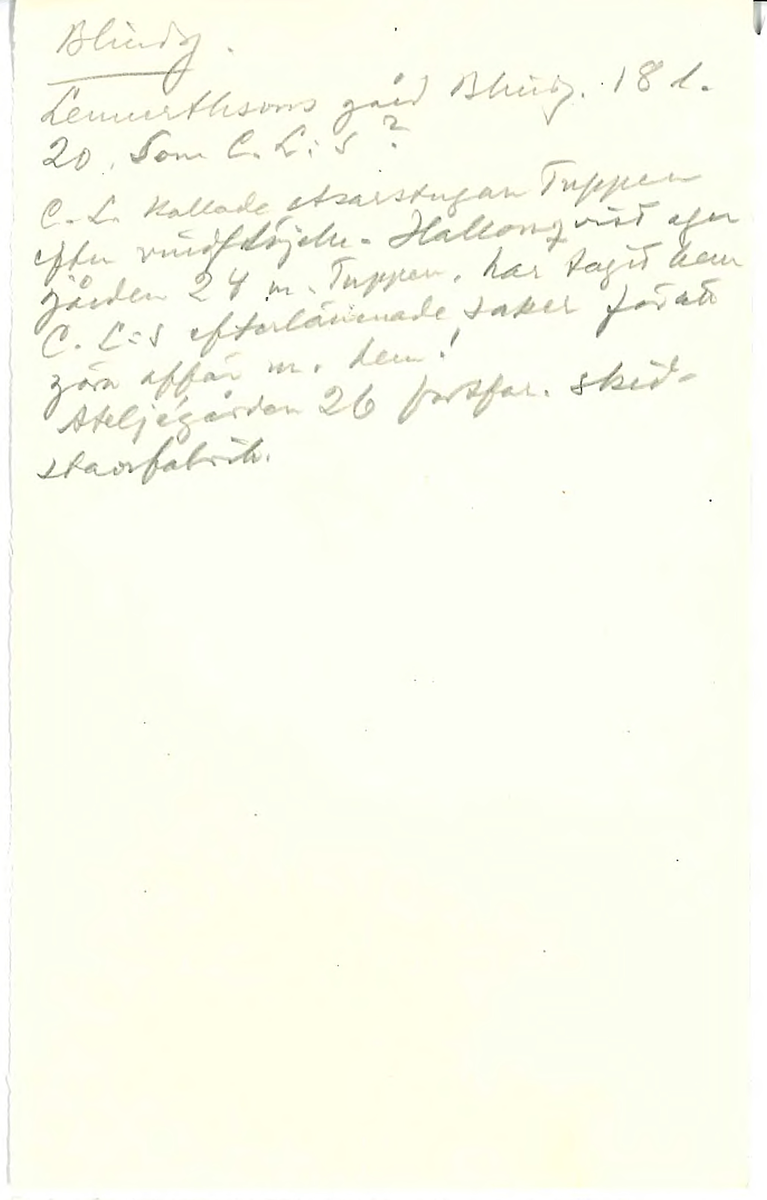 Blindg.
Lennerthsons gård Blindg. 18 l.
20. Som C. L:s?
C. L. kallade etsarstugan Tuppen
efter vindflöjeln. Hallonqvist äger
gården 24 m. Tuppen, har tagit hem
C. L:s efterlämnade saker för att
göra affär m. dem!
Ateljégården 26 fortfar. skid-
stavsfabrik.